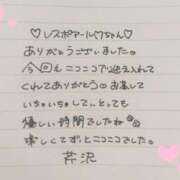 ♡レスポアールワちゃん♡
ありがとうございました。
今回もニコニコで迎え入れて
くれてありがとう お話して
いちゃいちゃして、とっても
優しい時間でしたね
楽しくてずっとニコニコでした
芹沢